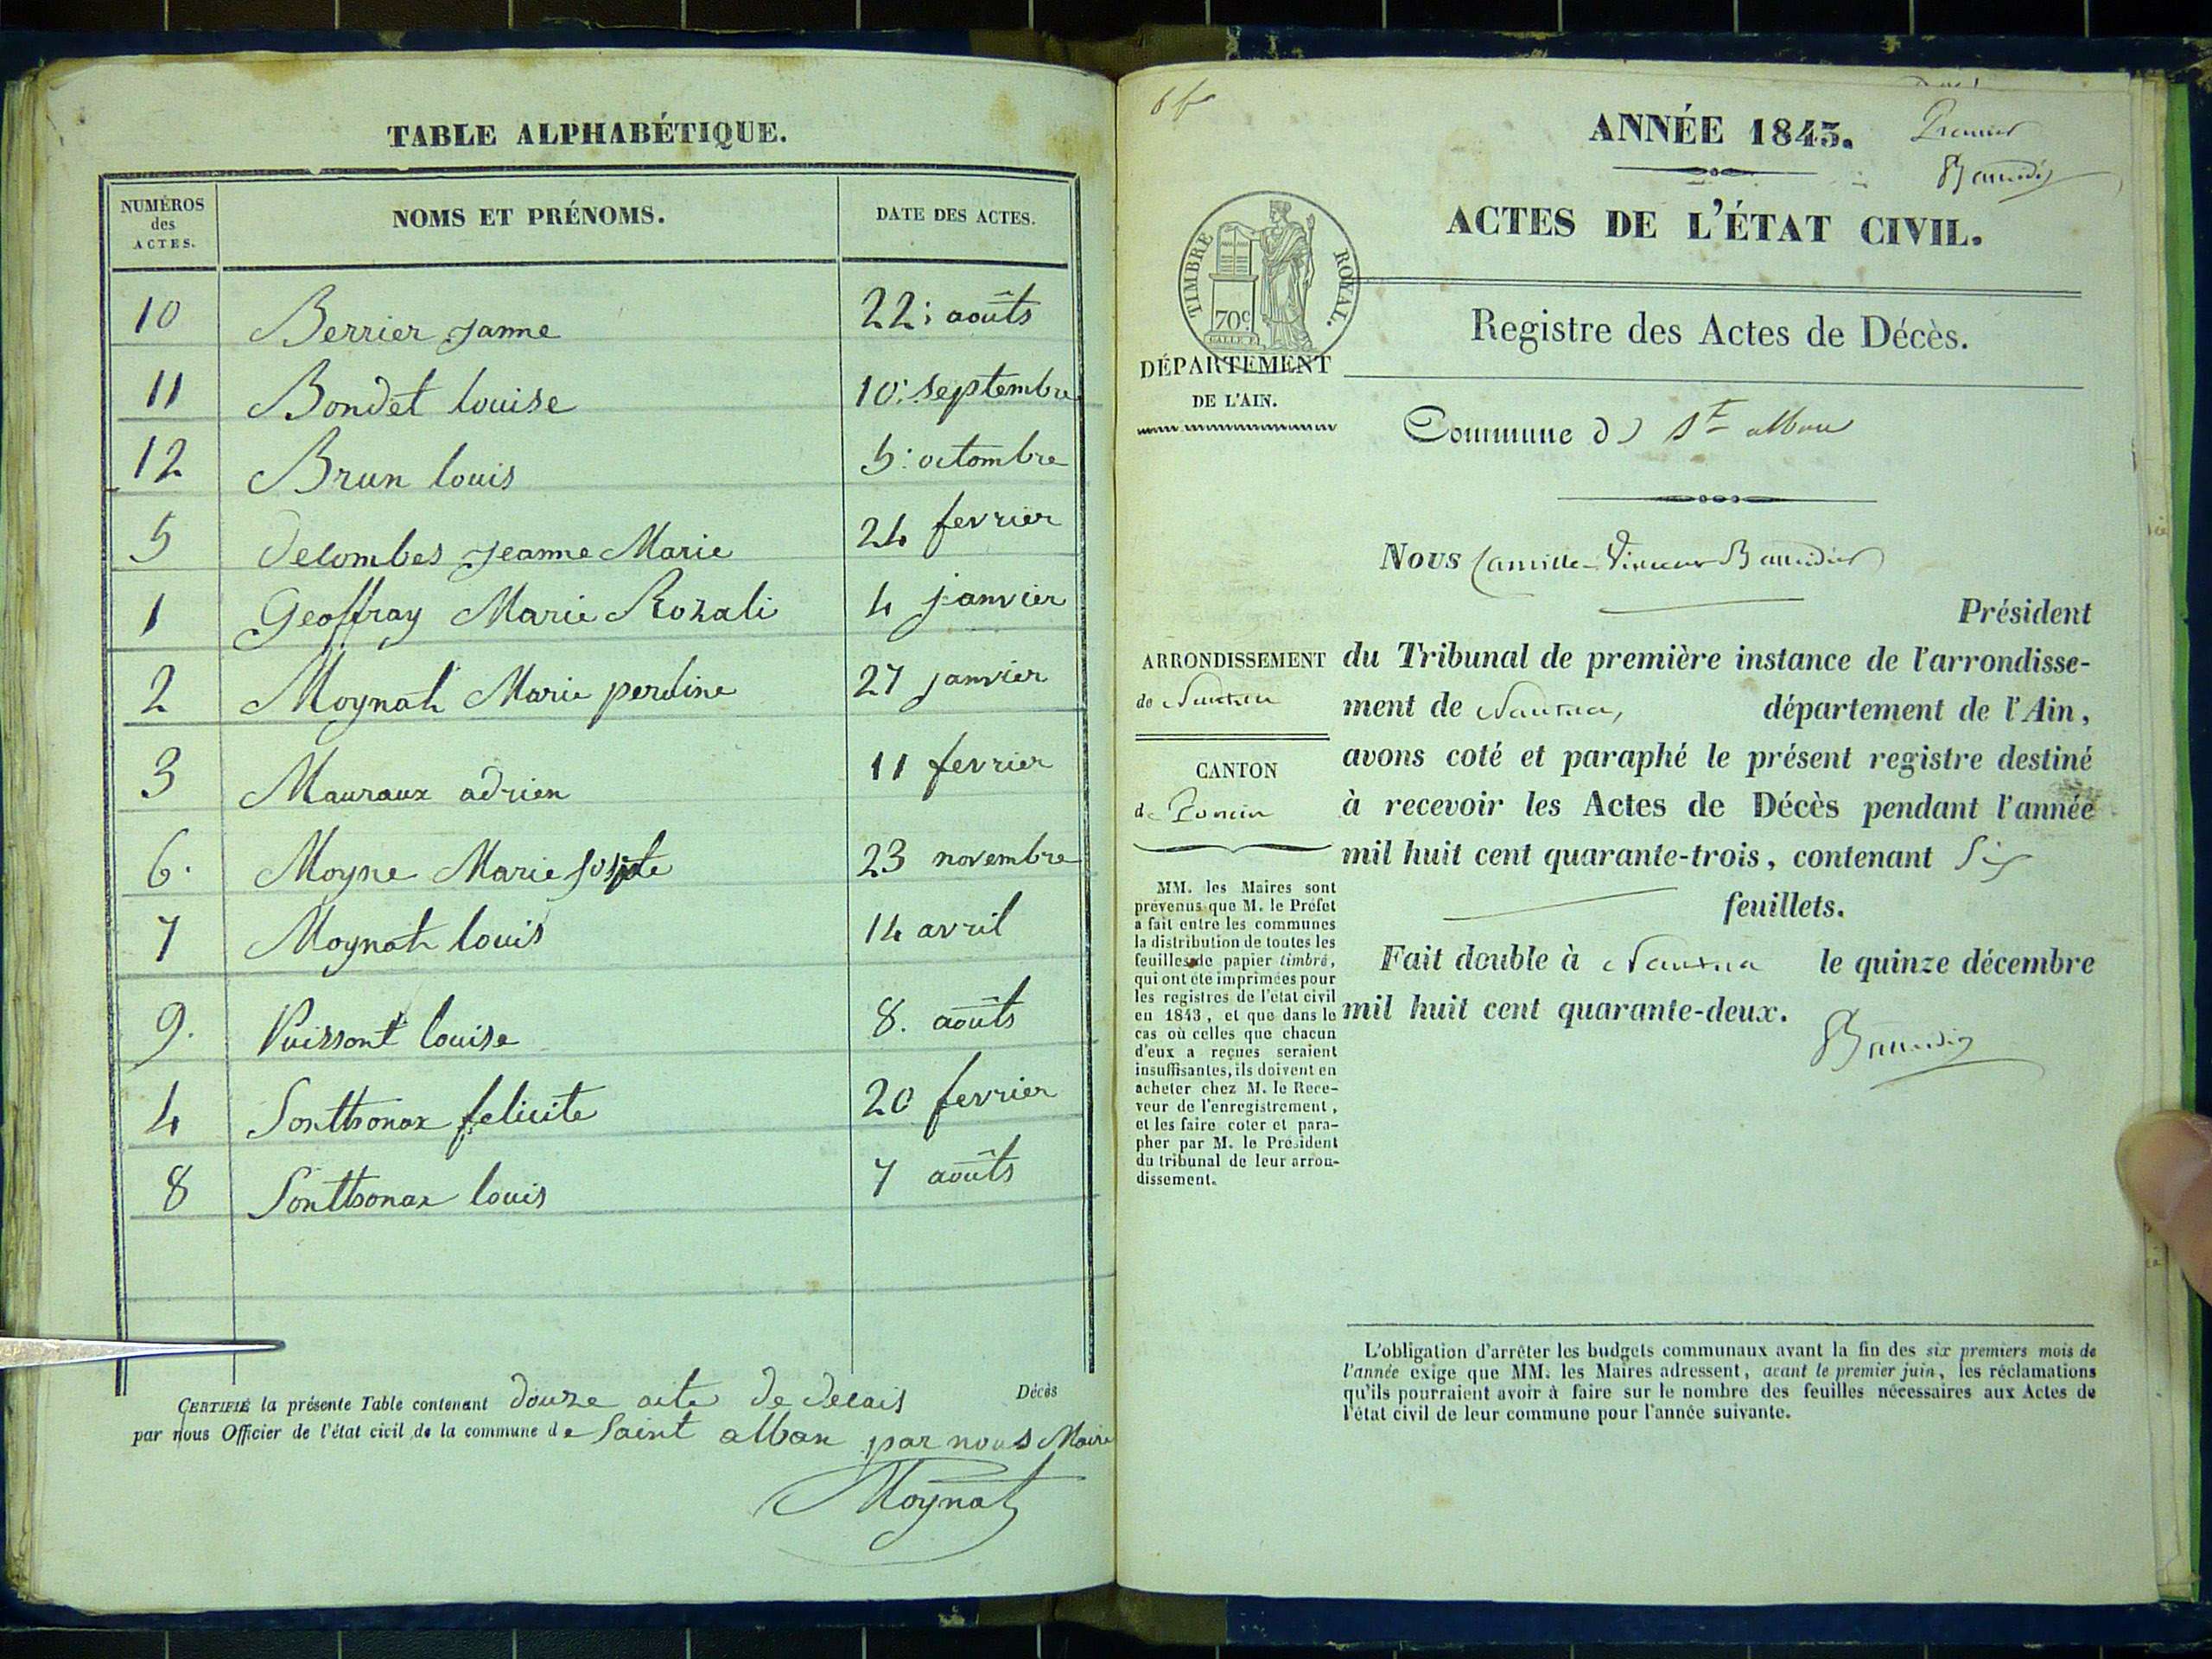 TABLE ALPHABÉTIQUE.
NUMÉROS des ACTES. NOMS ET PRÉNOMS. DATE DES ACTES.
10 Berrier Janne 22: aoûts
11 Bondet louise 10: septembre
12 Brun louis 5: octombre
5 decombes Jeanne Marie 24 fevrier
1 Geoffray Marie Rozali 4 janvier
2 Moynat Marie perdine 27 janvier
3 Mauraux adrien 11 fevrier
6. Moyne Marie 23 novembre
7 Moynat louis 14 avril
9. Puissont louise 8. aoûts
4 Sonthonax felicite 20 fevrier
8 Sonthonax louis 7 aoûts
CERTIFIÉ la présente Table contenant douze acte de decais Décès
par nous Officier de l'état civil de la commune de Saint alban par nous Maire
Moynat
ANNÉE 1843. Premier
Baudier
ACTES DE L'ÉTAT CIVIL.
TIMBRE ROYAL.
70c
Registre des Actes de Décès.
DÉPARTEMENT
DE L'AIN.
Commune de St alban
Nous Camille
Président
ARRONDISSEMENT
de Nantua
CANTON
de Poncin
du Tribunal de première instance de l'arrondisse-
ment de Nantua, département de l'Ain,
avons coté et paraphé le présent registre destiné
à recevoir les Actes de Décès pendant l'année
mil huit cent quarante-trois, contenant Six
feuillets.
Fait double à Nantua le quinze décembre
mil huit cent quarante-deux.
MM. les Maires sont
prévenus que M. le Préfet
a fait entre les communes
la distribution de toutes les
feuilles de papier timbré,
qui ont été imprimées pour
les registres de l'état civil
en 1843, et que dans le
cas où celles que chacun
d'eux a reçues seraient
insuffisantes, ils doivent en
acheter chez M. le Rece-
veur de l'enregistrement,
et les faire coter et para-
pher par M. le Président
du tribunal de leur arron-
dissement.
L'obligation d'arrêter les budgets communaux avant la fin des six premiers mois de
l'année exige que MM. les Maires adressent, avant le premier juin, les réclamations
qu'ils pourraient avoir à faire sur le nombre des feuilles nécessaires aux Actes de
l'état civil de leur commune pour l'année suivante.